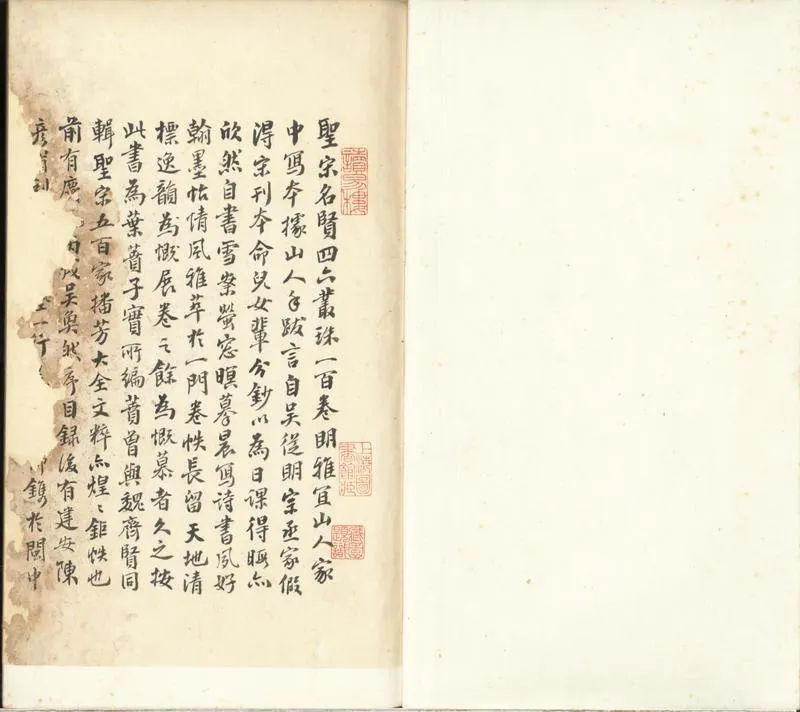 聖宋名賢四六叢珠一百卷明雅宜山人家
中寫本據山人手跋言自吳從明宗丞家假
得宋刊本命兒女輩分鈔以為日課得暇亦
欣然自書雪案螢窓暝摹晨寫詩書夙好
翰墨怡情風雅萃於一門卷帙長留天地清
標逸韻為慨展卷之餘為慨慕者久之按
此書為葉蕡子實所編蕡曾與魏齊賢同
輯聖宋五百家播芳大全文粹亦煌〻鉅帙也
前有慶 丙辰吳奐然序目録後有建安陳
彥甫刊 一行 鐫於閩中
讀易樓
上海圖書館藏
藏園題識